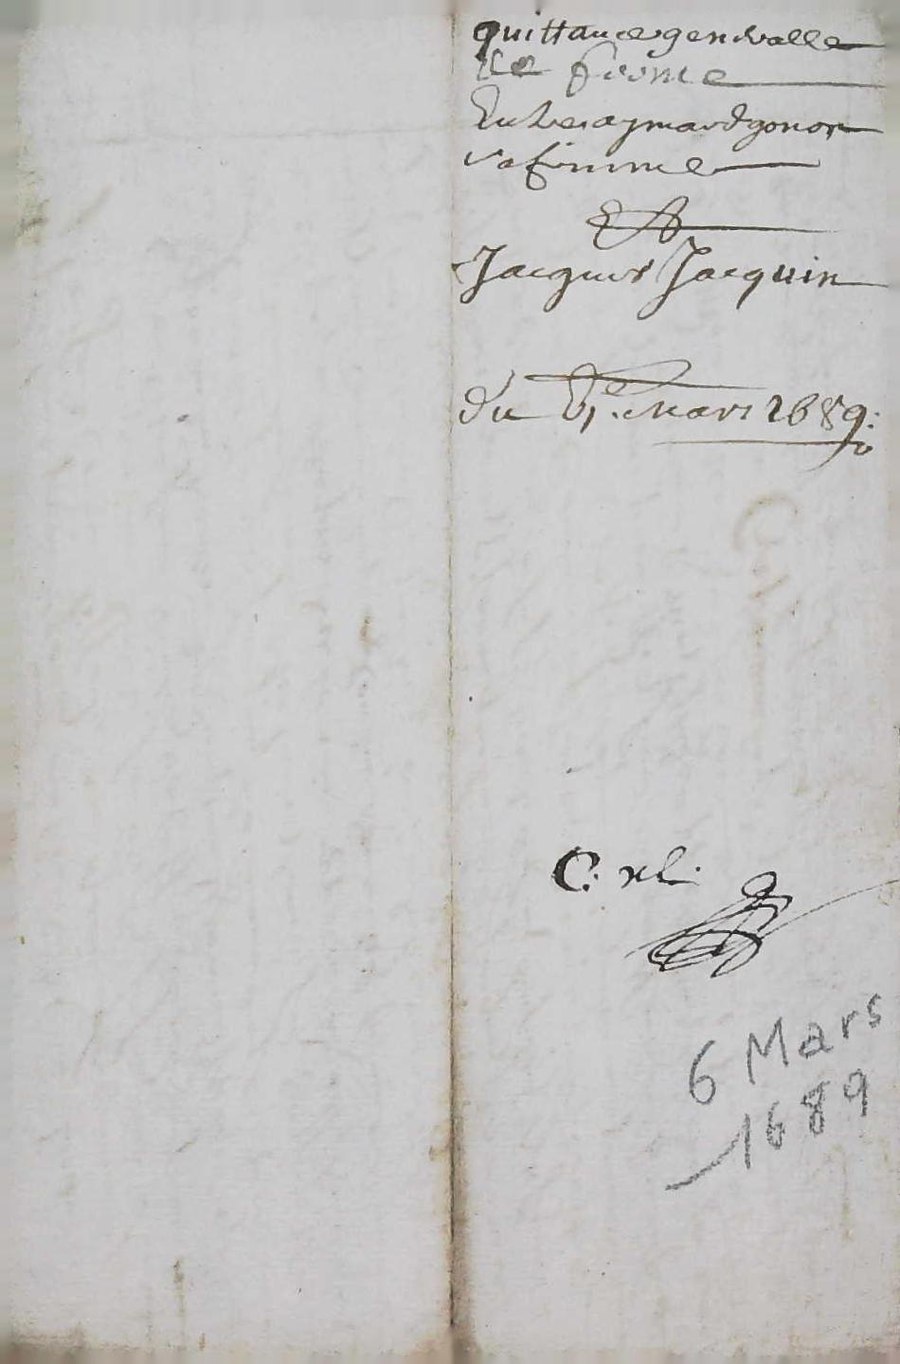 quittance generalle
de ferme
Entre aymard gonon
sa femme
Et
Jacques Jacquin
du 6e. Mars 1689.
C.
6 Mars
1689